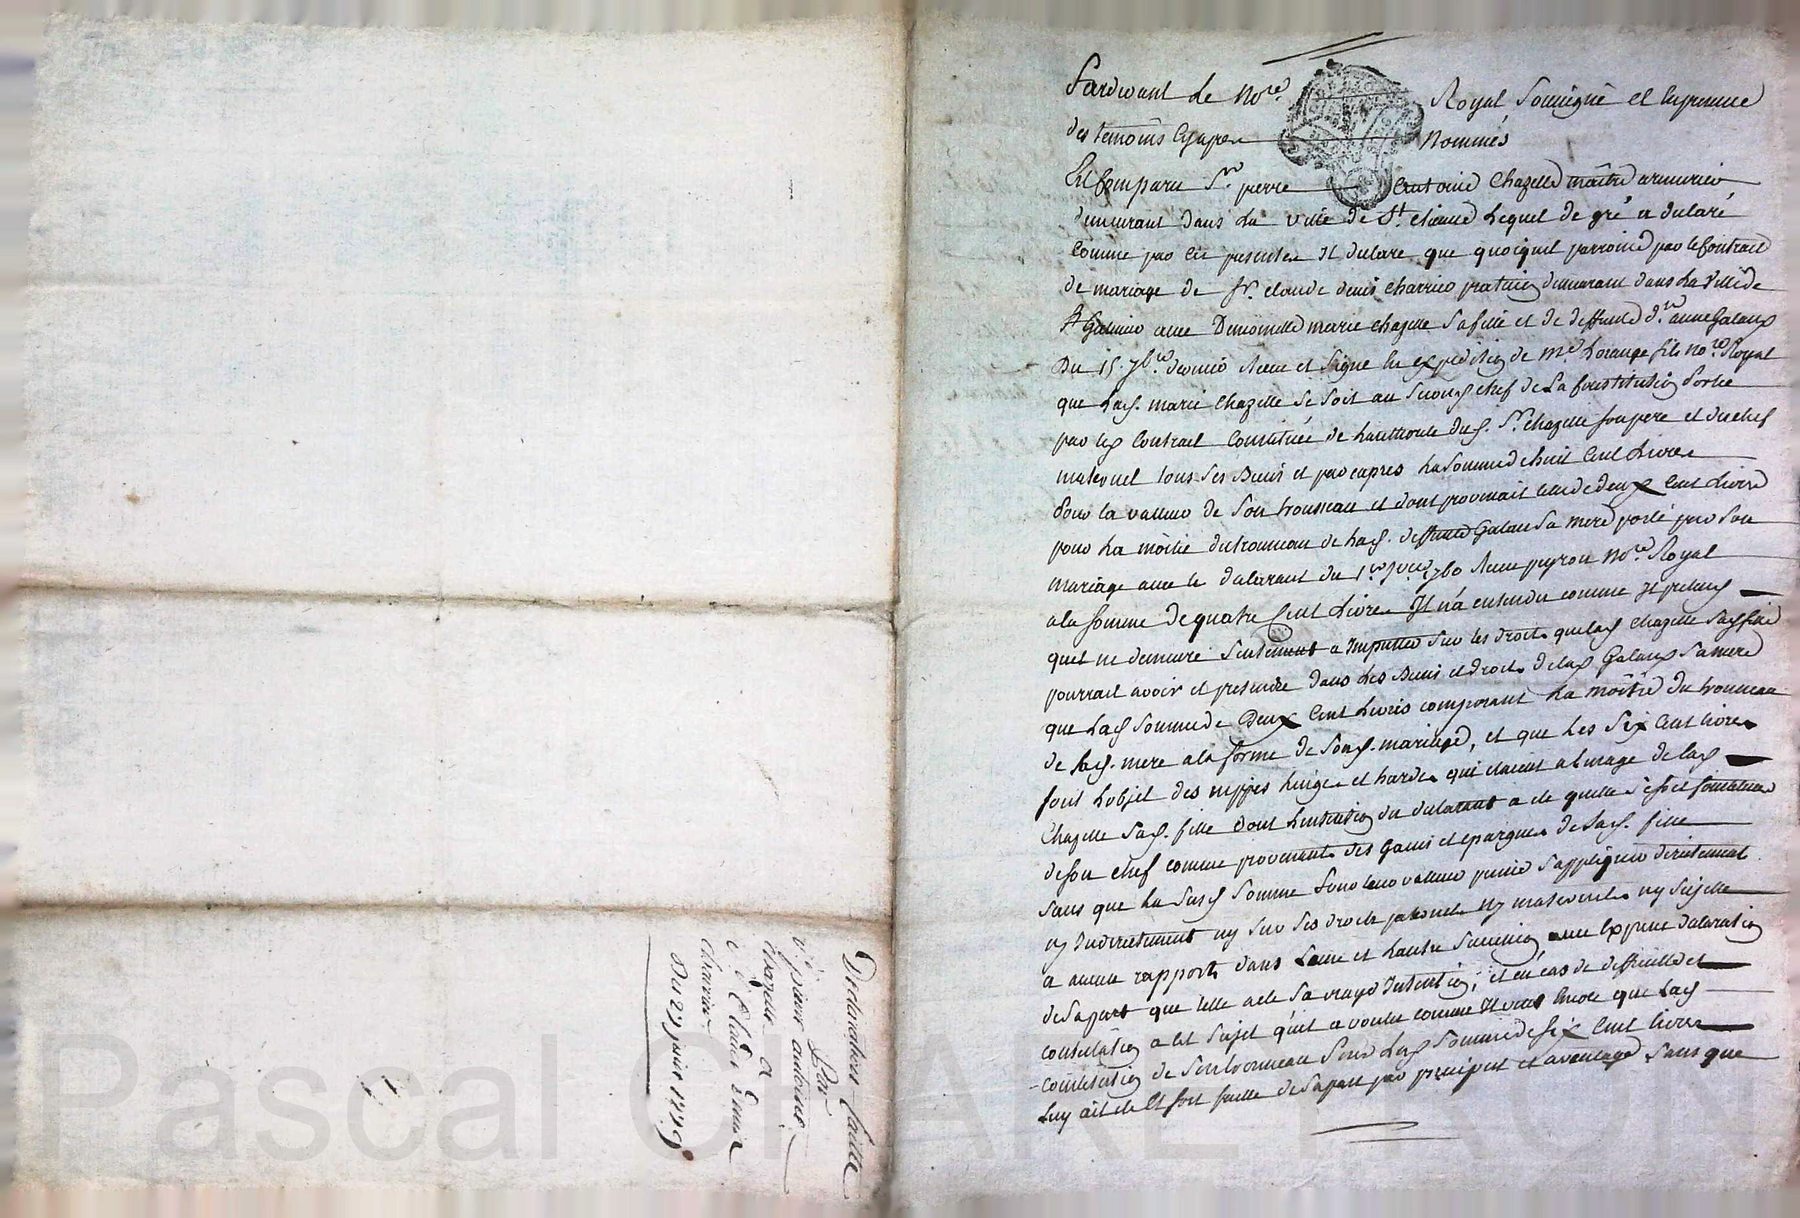 Pardevant le No.re Royal Soussigné et En presence
des temoins Cy apres Nommés
Est Comparu S.r pierre antoine Chazelle maitre armurier
demeurant dans la ville de S.t etienne lequel de gré a declaré
comme par Ces presentes Il declare que quoiquil paroisse par le Contrat
de mariage de S.r claude denis Charrier praticien demeurant dans la Ville de
S.t Galmier avec Demoiselle marie chazelle sa fille et de deffunte d.e anne Galand
Du 15. 7b.re dernier Recu et signé En expedition de M.e fils No.re Royal
que lad. marie Chazelle se soit au second chef de la Constitution portée
par led Contrat Constituée de lautthorité dud. S.r Chazelle son pere et du chef
maternel tous ses Biens et par exprès la somme de huit Cent Livres
pour la valleur de son trousseau et dont provenait celle de deux Cent Livres
pour la moitié du trousseau de lad. deffunte Galand sa mere porté par son
mariage avec le declarant du 1.er 1760 Recu peyron No.re Royal
a la somme de quatre Cent Livres Il n'a entendu comme Il pretend
quil ne demeure seulement a Imputter sur les droits que lad Chazelle sad fille
pourrait avoir et pretendre dans les Biens et droits de lad Galand sa mere
que lad somme de Deux Cent Livres composant la moitié du trousseau
de sad. mere a la forme de sond. mariage, et que les six Cent livres
font Lobjet des nippes Linges et hardes qui etaient a l'usage de lad
Chazelle sad. fille dont Lintention du declarant a ete quelle s'en fit
de son chef comme provenant des Gains et epargnes de sad. fille
sans que la susd somme pour leur valleur puisse s'appliquer directement
ny Indirectement ny sur ses droits paternels ny maternels ny sujette
a aucun rapport dans Lune et Lautre succession avec Expresse declaration
de sa part que telle a ete sa vraye Intention; et en cas de difficulté et
contestation a cet sujet quil a voulu comme Il veut Encore que lad
constitution de son trousseau pour lad somme de six Cent livres
Luy ait été Et soit faitte de sa part par preciput et avantage sans que
Declaration faitte
Par
S.r pierre antoine
chazelle a
S.r Claude Denis
charrier
Du 27 1779
Pascal CHAREYRON